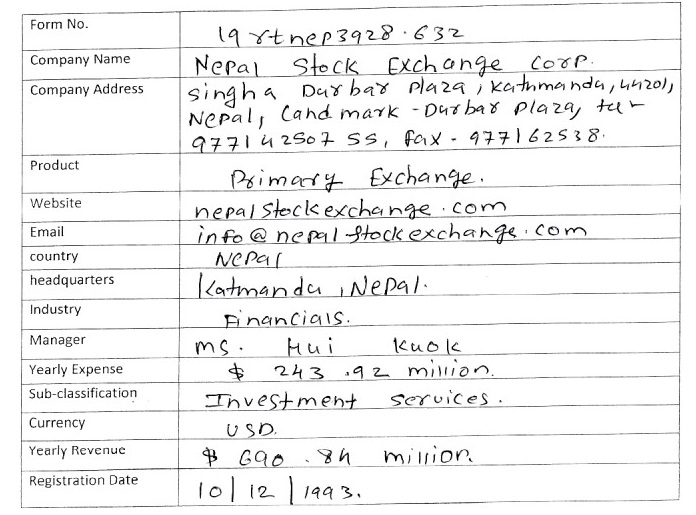 Form No. 19rtnep3928.632
Company Name Nepal Stock Exchange Corp.
Company Address singha Durbar Plaza, Kathmandu, 44201,
Nepal, Land mark - Durbar Plaza, tel-
977142507 55, fax - 977162538.
Product Primary Exchange.
Website nepalstockexchange.com
Email info@nepalstockexchange.com
country Nepal
headquarters Katmandu, Nepal.
Industry Financials.
Manager ms. Hui Kuok
Yearly Expense $ 243.92 million.
Sub-classification Investment services.
Currency USD.
Yearly Revenue $ 690.84 million.
Registration Date 10/12/1993.